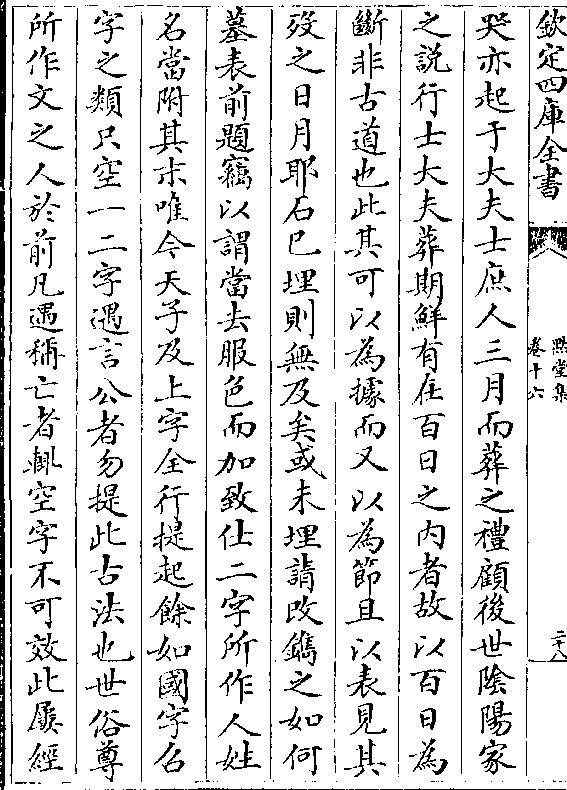 欽定四庫全書
點堂集
卷十六
二十八
哭亦起于大夫士庶人三月而葬之禮顧後世陰陽家
之說行士大夫葬期鮮有在百日之内者故以百日為
斷非古道也此其可以為據而又以為節且以表見其
歿之日月耶石已埋則無及矣或未埋請改鐫之如何
墓表前題竊以謂當去服色而加致仕二字所作人姓
名當附其末唯今天子及上字全行提起餘如國字召
字之類只空一二字遇言公者勿提此古法也世俗尊
所作文之人於前凡遇稱亡者輒空字不可效此屡經